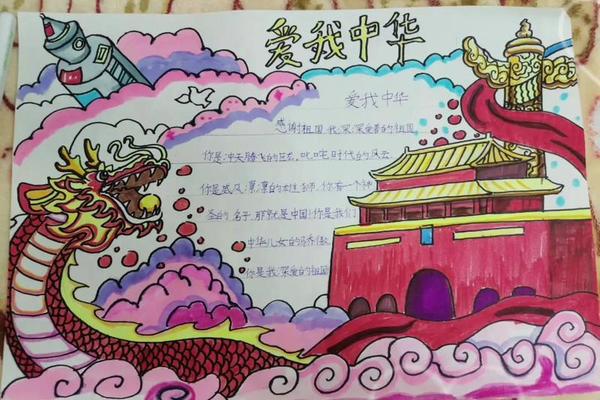 爱我中华
爱我中华
感谢祖国,我深深爱着的祖国
你是冲天腾飞的巨龙,叱咤时代的风云
你是威风凛凛的雄狮,你有一个神
圣的名字,那就是中国!你是我们
中华儿女的骄傲
你是我深爱的祖国